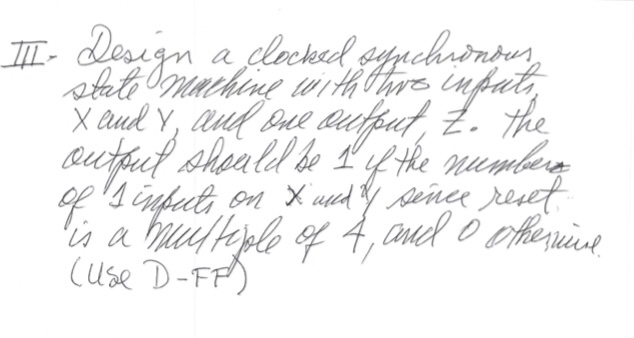 III- Design a clocked synchronous
state machine with two inputs,
X and Y, and one output, Z. The
output should be 1 if the number
of 1 inputs on X and Y since reset
is a multiple of 4, and 0 otherwise.
(Use D-FF)